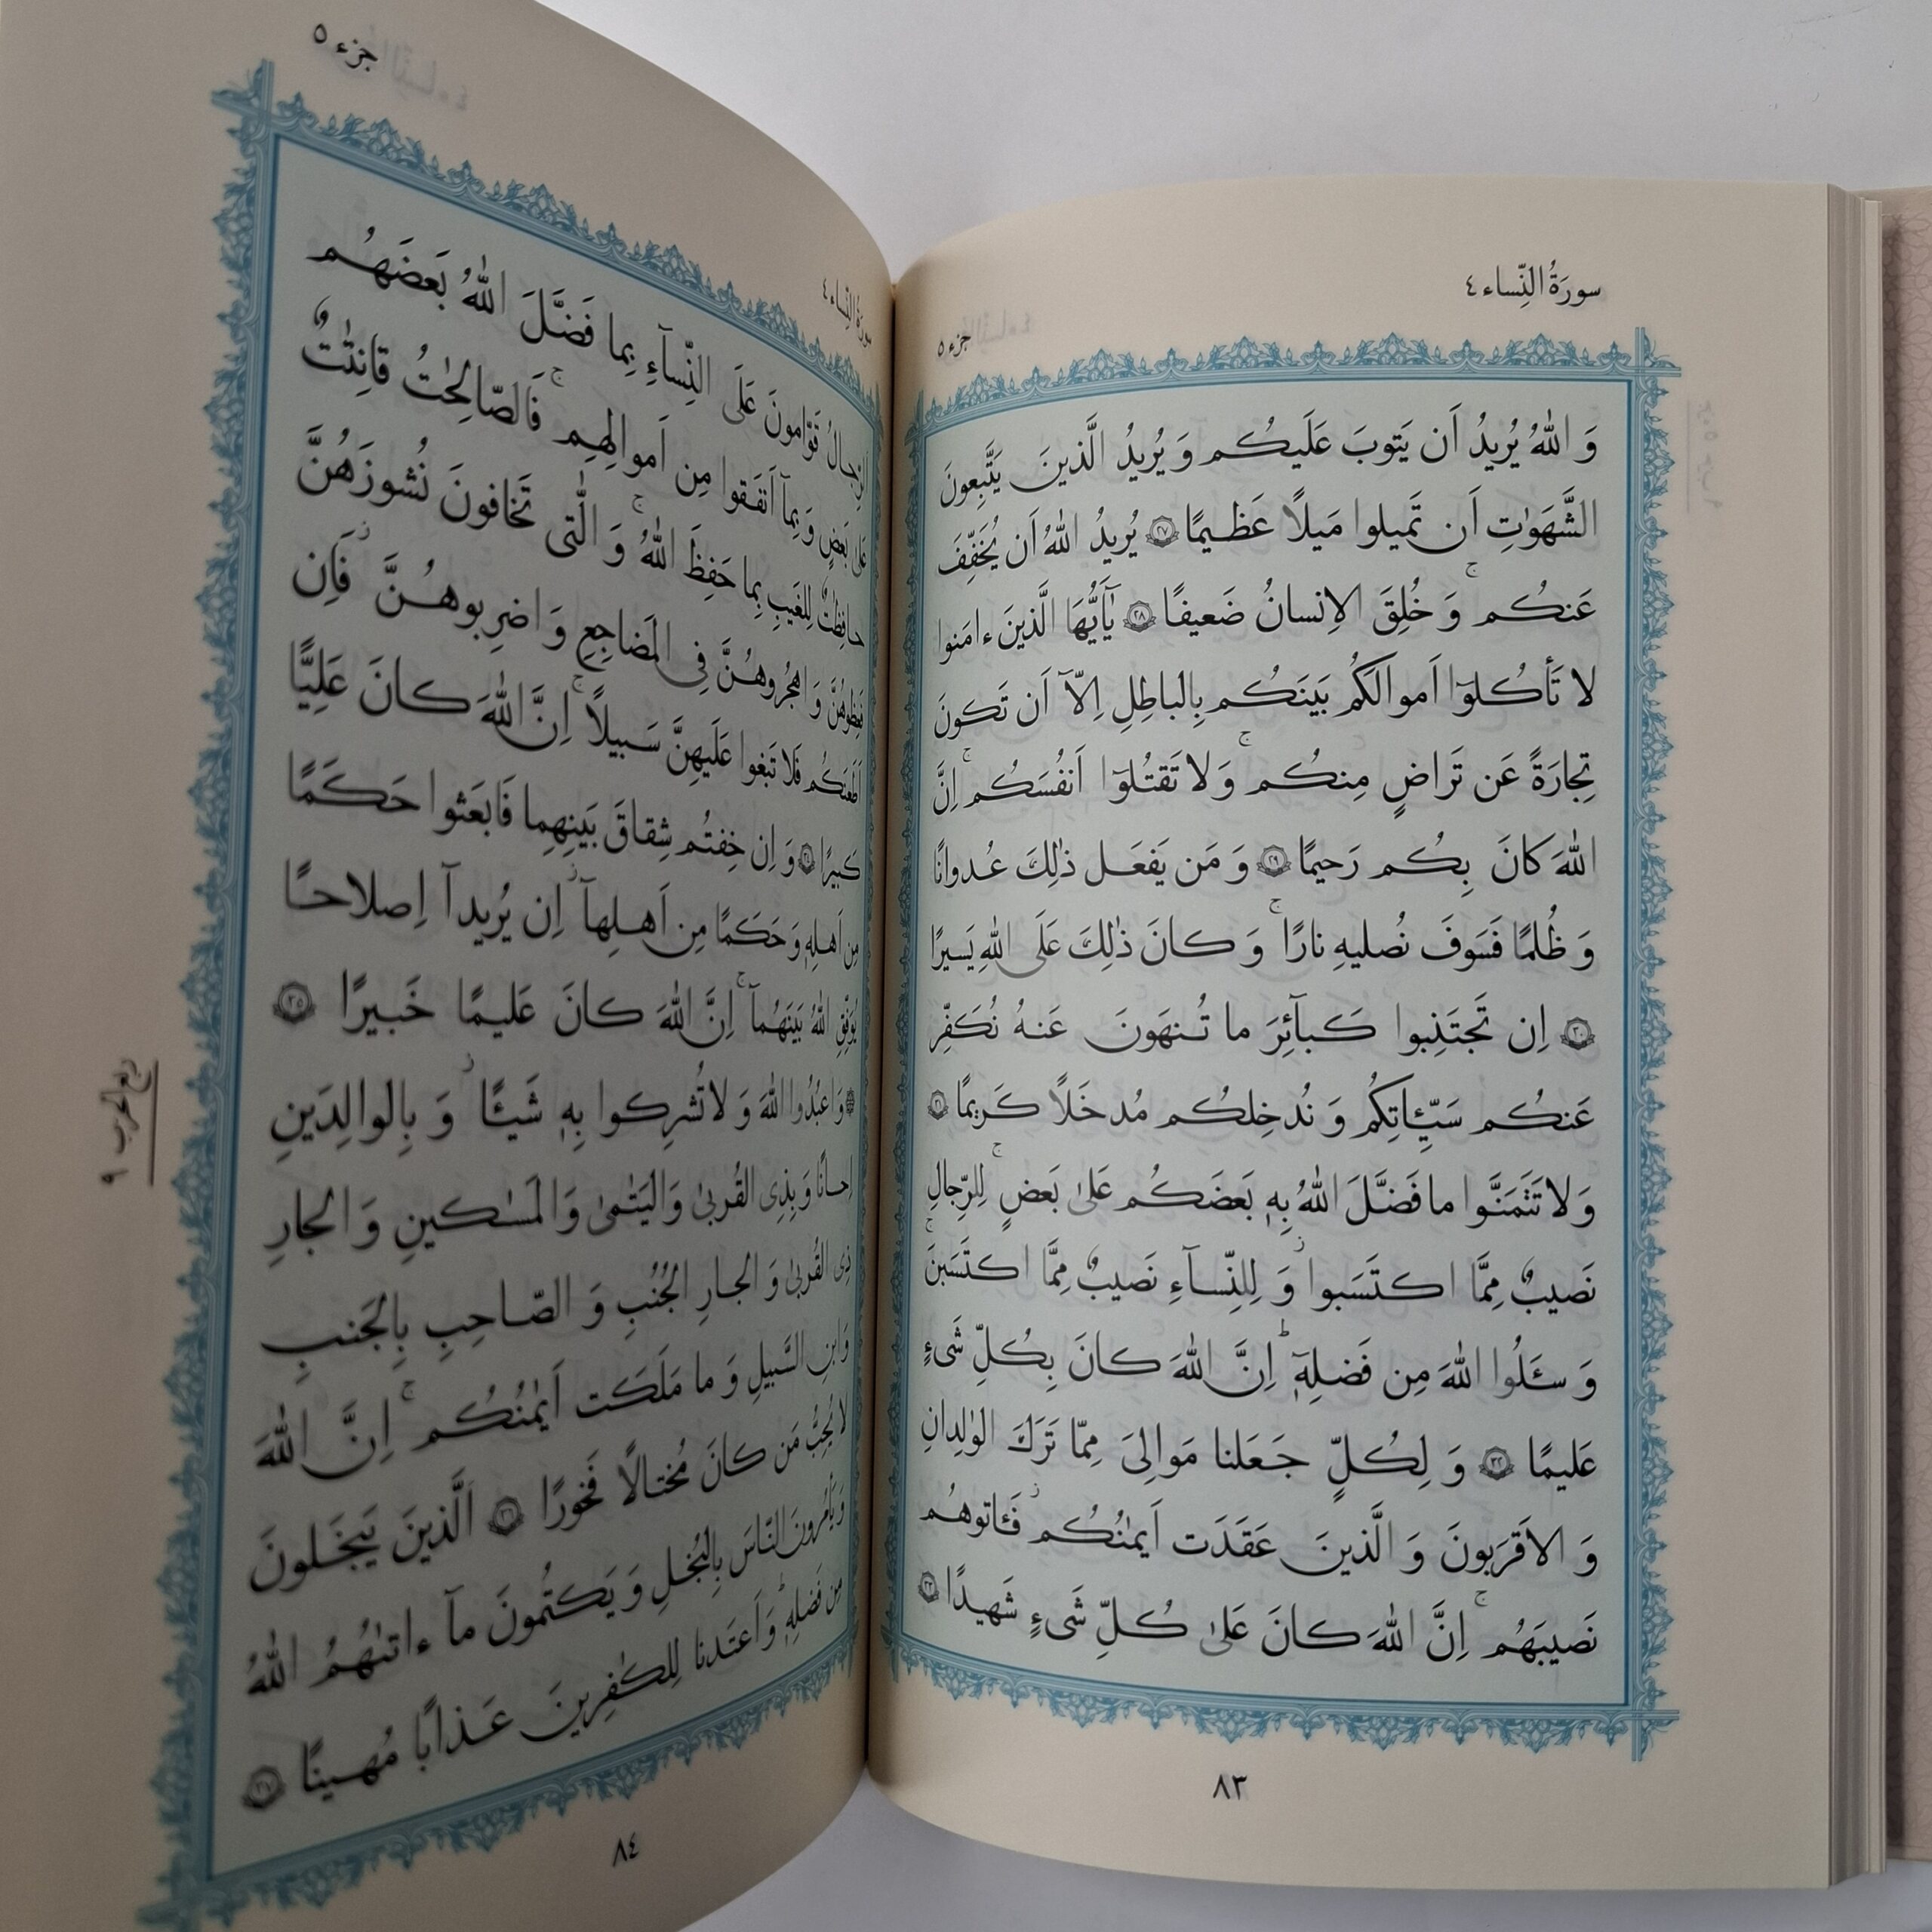 سورَةُ النِّساء ٤
جزء ٥
وَ اللّٰهُ يُريدُ اَن يَتوبَ عَلَيكُم وَ يُريدُ الَّذينَ يَتَّبِعونَ
الشَّهَوٰتِ اَن تَميلوا مَيلًا عَظيمًا ﴿٢٧﴾ يُريدُ اللّٰهُ اَن يُخَفِّفَ
عَنكُم ۚ وَ خُلِقَ الاِنسانُ ضَعيفًا ﴿٢٨﴾ يٰٓاَيُّهَا الَّذينَ ءامَنوا
لا تَأكُلوٓا اَموالَكُم بَينَكُم بِالباطِلِ اِلّآ اَن تَكونَ
تِجارَةً عَن تَراضٍ مِنكُم ۚ وَ لا تَقتُلوٓا اَنفُسَكُم ۚ اِنَّ
اللّٰهَ كانَ بِكُم رَحيمًا ﴿٢٩﴾ وَ مَن يَفعَل ذٰلِكَ عُدوانًا
وَ ظُلمًا فَسَوفَ نُصليهِ نارًا ۚ وَ كانَ ذٰلِكَ عَلَى اللّٰهِ يَسيرًا
﴿٣٠﴾ اِن تَجتَنِبوا كَبآئِرَ ما تُنهَونَ عَنهُ نُكَفِّر
عَنكُم سَيِّـٔاتِكُم وَ نُدخِلكُم مُدخَلًا كَريمًا ﴿٣١﴾
وَ لا تَتَمَنَّوا ما فَضَّلَ اللّٰهُ بِهٖ بَعضَكُم عَلىٰ بَعضٍ ۚ لِلرِّجالِ
نَصيبٌ مِمَّا اكتَسَبوا ۖ وَ لِلنِّسآءِ نَصيبٌ مِمَّا اكتَسَبنَ ۚ
وَ سـَٔلُوا اللّٰهَ مِن فَضلِهٖٓ ۗ اِنَّ اللّٰهَ كانَ بِكُلِّ شَىءٍ
عَليمًا ﴿٣٢﴾ وَ لِكُلٍّ جَعَلنا مَوالِىَ مِمّا تَرَكَ الوٰلِدانِ
وَ الاَقرَبونَ وَ الَّذينَ عَقَدَت اَيمٰنُكُم فَـٔاتوهُم
نَصيبَهُم ۚ اِنَّ اللّٰهَ كانَ عَلىٰ كُلِّ شَىءٍ شَهيدًا ﴿٣٣﴾
٨٣
سورَةُ النِّساء ٤
جزء ٥
اَلرِّجالُ قَوّامونَ عَلَى النِّسآءِ بِما فَضَّلَ اللّٰهُ بَعضَهُم
عَلىٰ بَعضٍ وَ بِمآ اَنفَقوا مِن اَموالِهِم ۚ فَالصّالِحٰتُ قانِتٰتٌ
حافِظٰتٌ لِلغَيبِ بِما حَفِظَ اللّٰهُ ۚ وَ الّٰتى تَخافونَ نُشوزَهُنَّ
فَعِظوهُنَّ وَ اهجُروهُنَّ فِى المَضاجِعِ وَ اضرِبوهُنَّ ۖ فَاِن
اَطَعنَكُم فَلا تَبغوا عَلَيهِنَّ سَبيلًا ۚ اِنَّ اللّٰهَ كانَ عَلِيًّا
كَبيرًا ﴿٣٤﴾ وَ اِن خِفتُم شِقاقَ بَينِهِما فَابعَثوا حَكَمًا
مِن اَهلِهٖ وَ حَكَمًا مِن اَهلِهآ ۖ اِن يُريدآ اِصلاحًا
يُوَفِّقِ اللّٰهُ بَينَهُمآ ۚ اِنَّ اللّٰهَ كانَ عَليمًا خَبيرًا ﴿٣٥﴾
۞ وَ اعبُدُوا اللّٰهَ وَ لا تُشرِكوا بِهٖ شَيـًٔا ۖ وَ بِالوالِدَينِ
اِحسانًا وَ بِذِى القُربىٰ وَ اليَتٰمىٰ وَ المَسٰكينِ وَ الجارِ
ذِى القُربىٰ وَ الجارِ الجُنُبِ وَ الصّاحِبِ بِالجَنبِ
وَ ابنِ السَّبيلِ وَ ما مَلَكَت اَيمٰنُكُم ۚ اِنَّ اللّٰهَ
لا يُحِبُّ مَن كانَ مُختالًا فَخورًا ﴿٣٦﴾ اَلَّذينَ يَبخَلونَ
وَ يَأمُرونَ النّاسَ بِالبُخلِ وَ يَكتُمونَ مآ ءاتىٰهُمُ اللّٰهُ
مِن فَضلِهٖ ۗ وَ اَعتَدنا لِلكٰفِرينَ عَذابًا مُهينًا ﴿٣٧﴾
ربع الحزب ٩
٨٤